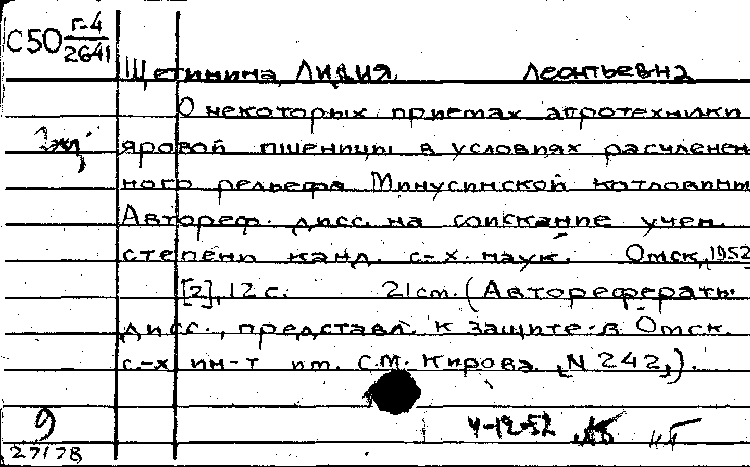 С50 Г-4
2641
Щетинина, Лидия Леонтьевна
О некоторых приемах агротехники
яровой пшеницы в условиях расчленен
ного рельефа Минусинской котловины
Автореф. дисс. на соискание учен.
степени канд. с-х. наук. Омск, 1952
[2], 12 с. 21 cm. (Авторефераты
дисс., представл. к защите в Омск.
с.-х ин-т им. С.М. Кирова [N 242]).
9
27178
4-12-52